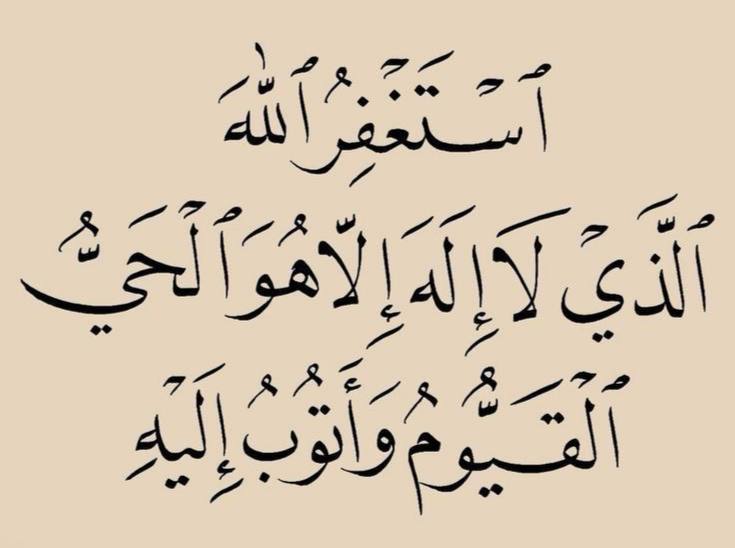 ٱسْتَغْفِرُ ٱللّٰهَ
ٱلَّذِيْ لَا إِلَهَ إِلَّا هُوَ ٱلْحَيُّ
ٱلْقَيُّومُ وَأَتُوبُ إِلَيْهِ